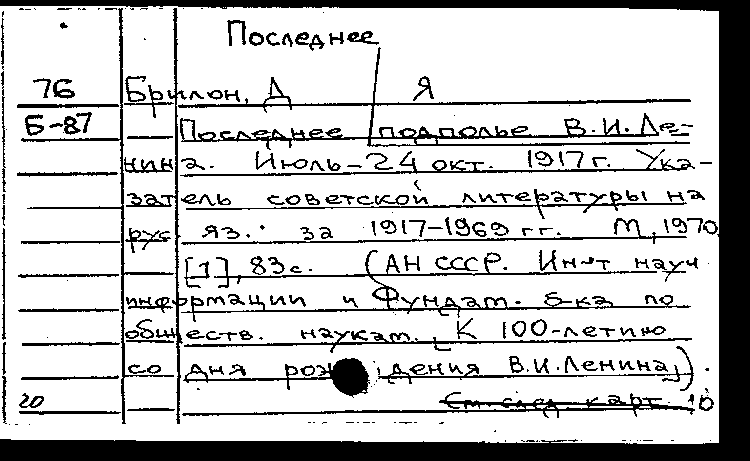 Последнее
76 Брилон, Д Я
Б-87 Последнее подполье В.И. Ле-
нина. Июль-24 окт. 1917г. Ука-
затель советской литературы на
рус. яз. за 1917-1969 гг. М, 1970
[1], 83с. (АН СССР. Ин-т науч
информации и Фундам. б-ка по
обществ. наукам. [К 100-летию
со дня рождения В.И. Ленина]).
20 См след. карт. 10